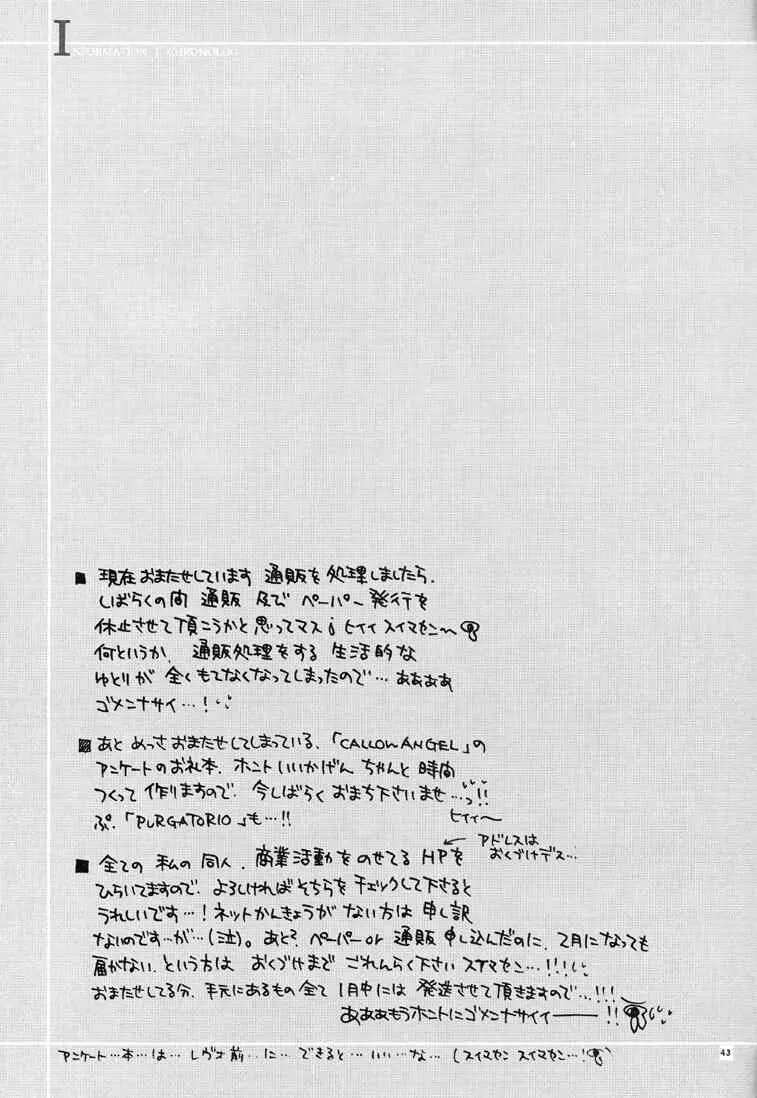 INFORMATION | CHRONOLOG
■ 現在おまたせしています 通販を処理しましたら、
しばらくの間 通販 及び ペーパー発行を
休止させて頂こうかと思ってマス¡ ヒイイ スイマセン〜
何というか、通販処理をする 生活的な
ゆとりが 全くもてなくなってしまったので…ああああ
ゴメンナサイ…!
▨ あと めっさおまたせしてしまっている、「CALLOW ANGEL」の
アンケートのお礼本、ホントいいかげん ちゃんと 時間
つくって 作りますので、今しばらく おまち下さいませ…っ!!
ぷ、「PURGATORIO」も…!! ヒイィ〜
■ 全ての 私の同人、商業活動をのせてる HPを
← アドレスは
おくづけデス…
ひらいてますので、よろしければそちらをチェックして下さると
うれしいです…! ネットかんきょうが ない方は 申し訳
ないのです…が…(泣)。あと、ペーパーor 通販 申し込んだのに、2月になっても
届かない、という方は おくづけまで ごれんらく下さい スイマセン…!!!
おまたせしてる分、手元にあるもの全て 1月中には 発送させて頂きますので…!!!
あああもうホントにゴメンナサイィ――!!
アンケート…本…は… レヴォ前…に… できると… いい…な… (スイマセン スイマセン…!
43